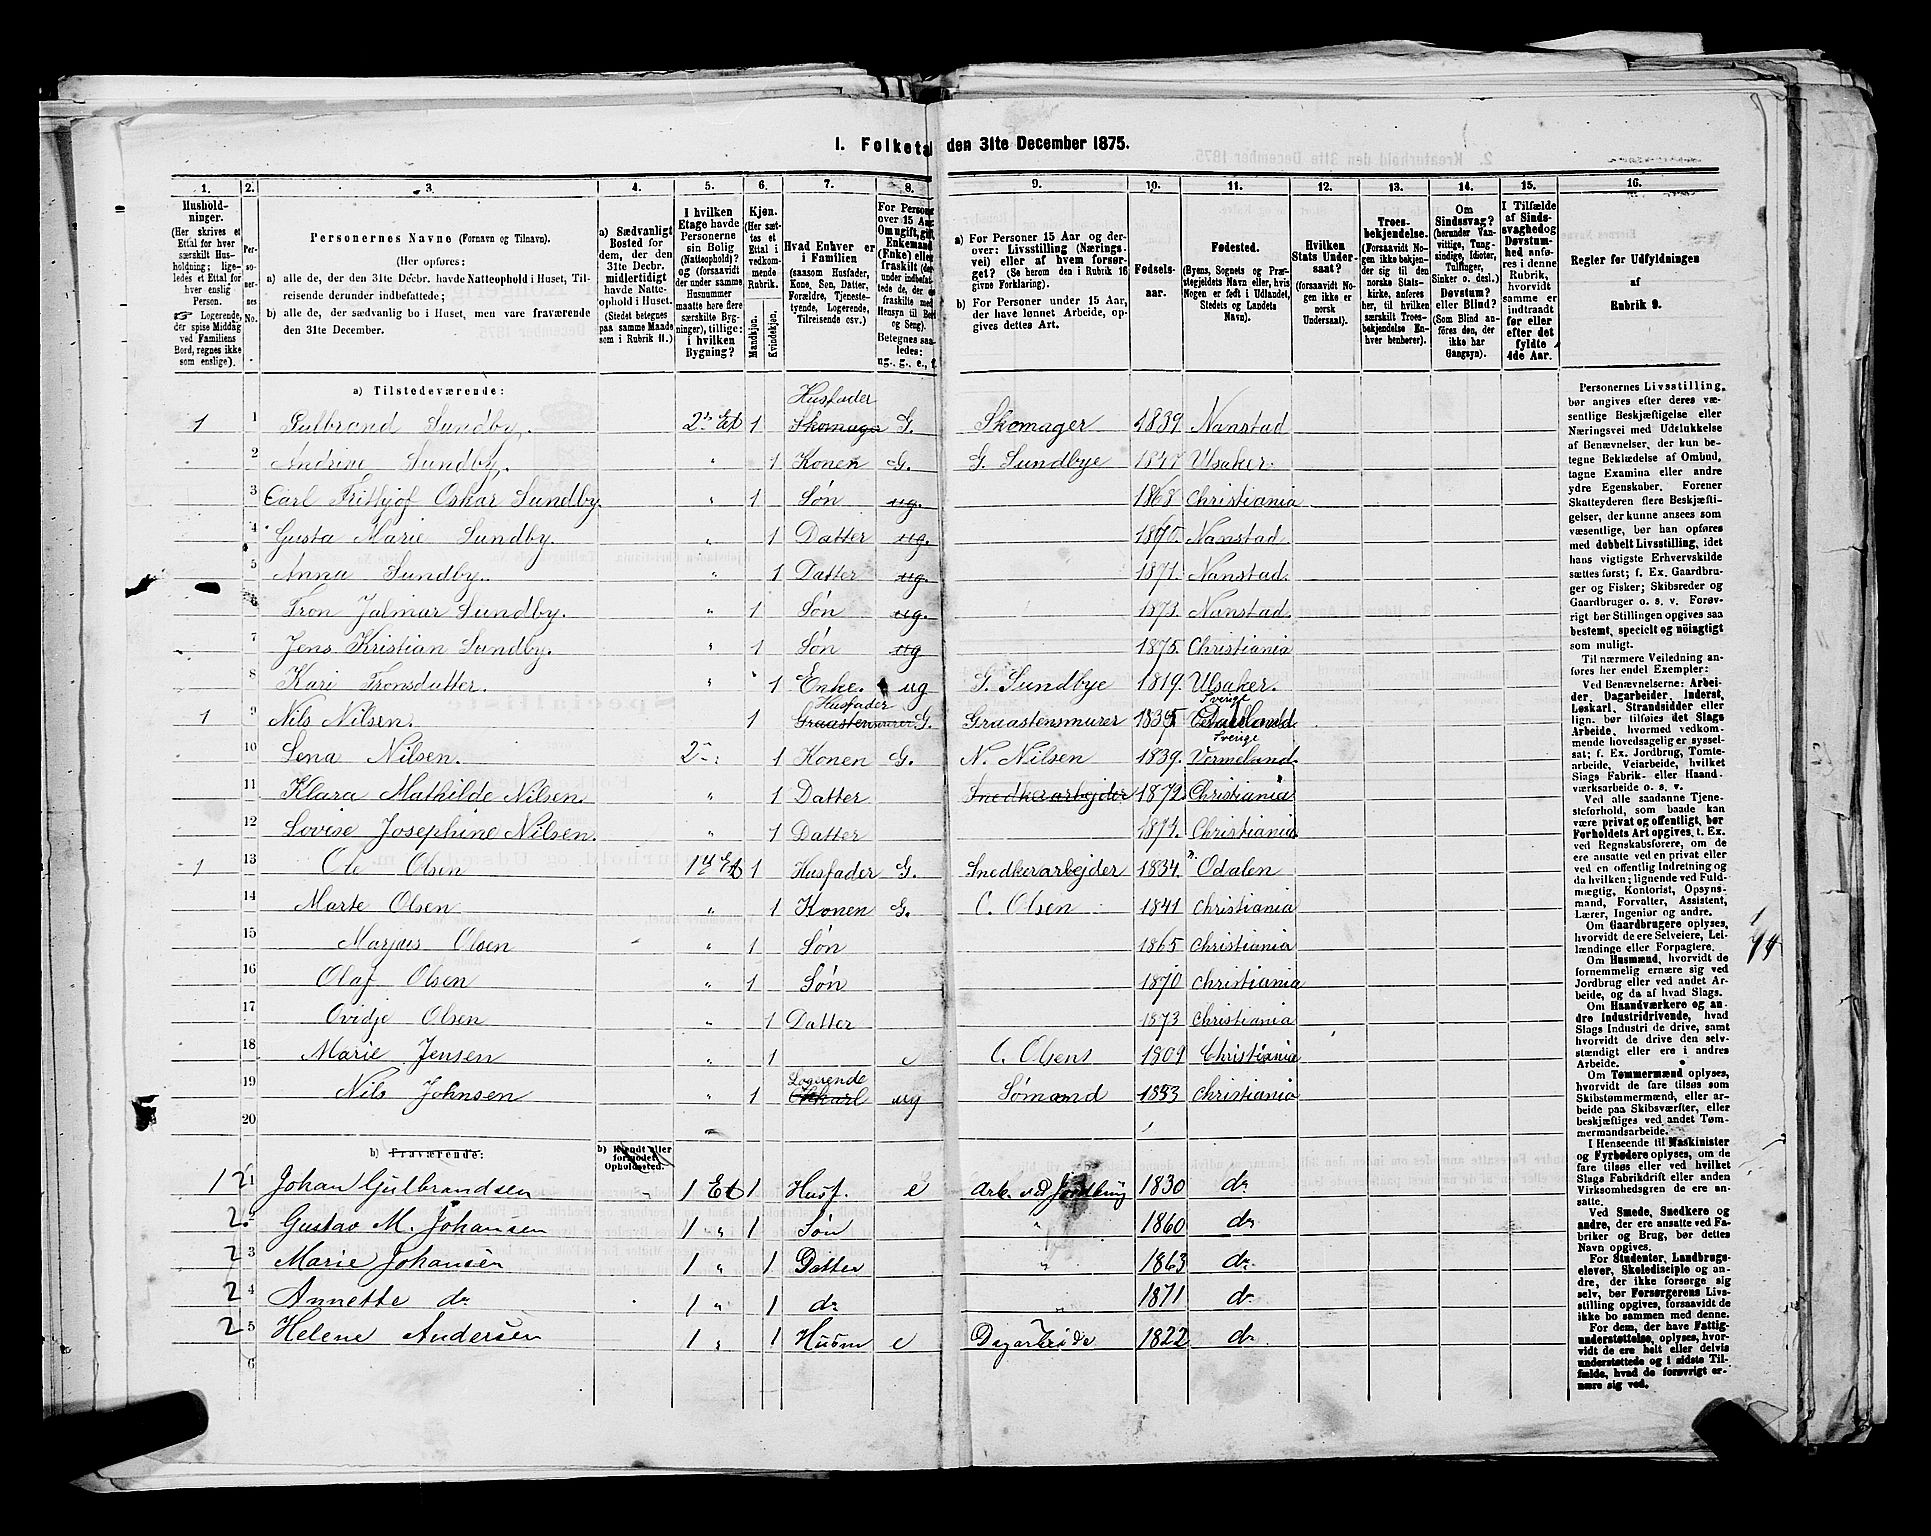 1. Folketal den 31te December 1875.
1. 2. 3. 4. 5. 6. 7. 8. 9. 10. 11. 12. 13. 14. 15. 16.
Hushold-
ninger.
(Her skrives et
Ettal for hver
særskilt Hus-
holdning; lige-
ledes et Ettal
for hver enslig
Person.
☞ Logerende,
der spise Middag
ved Familiens
Bord, regnes ikke
som enslige).
Personernes Navne (Fornavn og Tilnavn).
(Her opføres:
a) alle de, der den 31te Decbr. havde Natteophold i Huset, Til-
reisende derunder indbefattede;
b) alle de, der sædvanlig bo i Huset, men vare fraværende
den 31te December.
a) Sædvanligt
Bosted for
dem, der den
31te Decbr.
midlertidigt
havde Natte-
ophold i Huset.
(Stedet betegnes
paa samme Maade
som i Rubrik 11.)
I hvilken
Etage havde
Personerne
sin Bolig
(Natteophold)?
og (forsaavidt
der under samme
Husnummer
maatte høre flere
særskilte Byg-
ninger), tillige:
i hvilken
Bygning?
Kjøn.
(Her sæt-
tes et
Ettal i
vedkom-
mende
Rubrik.
Mandkjøn. Kvindekjøn.
Hvad Enhver er
i Familien
(saasom Husfader,
Kone, Søn, Datter,
Forældre, Tjeneste-
tyende, Logerende,
Tilreisende osv.)
a) For Personer 15 Aar og der-
over: Livsstilling (Nærings-
vei) eller af hvem forsør-
get? (Se herom den i Rubrik 16
givne Forklaring).
b) For Personer under 15 Aar,
der have lønnet Arbeide, op-
gives dettes Art.
Fødsels-
aar.
Fødested.
(Byens, Sognets og Præ-
stegjeldets Navn eller, hvis
Nogen er født i Udlandet,
Stedets og Landets
Navn).
Hvilken
Stats Under-
saat?
(forsaavidt No-
gen ikke er
norsk
Undersaat).
Troes-
bekjendelse.
(Forsaavidt No-
gen ikke bekjen-
der sig til den
norske Stats-
kirke, anføres
her, til hvilken
særskilt Troes-
bekjendelse En-
hver henhører).
Om
Sindssvag?
(herunder Van-
vittige, Tung-
sindige, Idioter,
Tullinger,
Sinker o. desl.)
Døvstum?
eller Blind?
(Som Blind an-
føres den, der
ikke har
Gangsyn).
I Tilfælde
af Sinds-
svaghed og
Døvstum-
hed anfø-
res i denne
Rubrik,
hvorvidt
samme er
indtraadt
før eller
efter det
fyldte
4de Aar.
Regler for Udfyldningen
af
Rubrik 9.
a) Tilstedeværende:
1 1 Gulbrand Sundby. 2n Et 1 Husfader Skomager G. Skomager 1839 Nanstad
2 Andrine Sundby. „ 1 Konen G. G. Sundbye Ulsaker.
3 Carl Frithjof Oskar Sundby. „ 1 Søn ug. 1868 Christiania
4 Gusta Marie Sundby. „ 1 Datter ug. 1870. Nanstad.
5 Anna Sundby. „ 1 Datter ug. 1871. Nanstad.
6 Tron Jalmar Sundby. „ 1 Søn ug. 1873. Nanstad.
7 Jens Kristian Sundby. „ 1 Søn ug 1875. Christiania
8 Kari Tronsdatter. „ 1 Enke. ug G. Sundbye 1819. Ulsaker.
1 9 Nils Nilsen. 1 Husfader Graastensmurer G. Graastensmurer 1835 Sverige
10 Lena Nilsen. 2 „ 1 Konen G. N. Nilsen 1839. Sverige Vermeland.
11 Klara Mathilde Nilsen „ 1 Datter Snedkerarbejder 1872. Christiania
12 Lovise Josephine Nilsen. „ 1 Datter 1874. Christiania
1 13 Ole Olsen 1 Et 1 Husfader G. Snedkerarbejder 1834 Odalen
14 Marte Olsen „ 1 Konen G. O. Olsen 1841 Christiania
15 Marjus Olsen „ 1 Søn 1865 Christiania
16 Olaf Olsen „ 1 Søn 1870 Christiania
17 Ovidje Olsen „ 1 Datter 1873 Christiania
18 Marie Jensen „ 1 e O. Olsens 1809 Christiania
19 Nils Johnsen „ 1 Logerende ug Sømand 1853 Christiania
20
b) Fraværende: b) Kjendt eller formodet Opholdssted.
1 2 1 Johan Gulbrandsen 1 Et 1 Husf. e Arb. ved Jordbrug 1830 do
2. 2 Gustav M. Johansen 1 „ 1 Søn „ 1860 do
2 3 Marie Johansen 1 „ 1 Datter „ 1863 do
2 4 Annette do 1 „ 1 do „ 1871 do
2 5 Helene Andersen 1 „ 1 Husm e Dagarbeide 1822 do
6
Personernes Livsstilling,
bør angives efter deres væ-
sentlige Beskjæftigelse eller
Næringsvei med Udelukkelse
af Benævnelser, der kun be-
tegne Beklædelse af Ombud,
tagne Examina eller andre
ydre Egenskaber. Forener
Skatteyderen flere Beskjæfti-
gelser, der kunne ansees som
væsentlige, bør han opføres
med dobbelt Livsstilling, idet
hans vigtigste Erhvervskilde
sættes først; f. Ex. Gaardbru-
ger og Fisker; Skibsreder og
Gaardbruger o. s. v. Forøv-
rigt bør Stillingen opgives saa
bestemt, specielt og nöiagtigt
som muligt.
Til nærmere Veiledning an-
føres her endel Exempler:
Ved Benævnelserne: Arbei-
der, Dagarbeider, Inderst,
Løskarl, Strandsidder eller
lign. bør tilføies det Slags
Arbeide, hvormed vedkom-
mende hovedsagelig er syssel-
sat; f. Ex. Jordbrug, Tomte-
arbeide, Veiarbeide, hvilket
Slags Fabrik- eller Haand-
værksarbeide o. s. v.
Ved alle saadanne Tjene-
steforhold, som baade kan
være privat og offentligt, bør
Forholdets Art opgives, t. Ex.
ved Regnskabsførere, om de
ere ansatte ved en privat eller
en offentlig Indretning og
da hvilken; lignende ved Fuld-
mægtig, Kontorist, Opsyns-
mand, Forvalter, Assistent,
Lærer, Ingeniør og andre.
Om Gaardbrugere oplyses,
hvorvidt de ere Selveiere, Lei-
lændinge eller Forpagtere.
Om Husmænd, hvorvidt de
fornemmelig ernære sig ved
Jordbrug eller ved andet Ar-
beide, og da af hvad Slags.
Om Haandværkere og an-
dre Industridrivende, hvad
Slags Industri de drive, samt
hvorvidt de drive den selv-
stændigt eller ere i andres
Arbeide.
Om Tømmermænd oplyses,
hvorvidt de fare tilsøs som
Skibstømmermænd, eller ar-
beide paa Skibsværfter, eller
beskjæftiges ved andet Tøm-
mermandsarbeide.
I Henseende til Maskinister
og Fyrbødere oplyses, om de
fare tilsøs eller ved hvilket
Slags Fabrikdrift eller anden
Virksomhedsgren de ere an-
satte.
Ved Smede, Snedkere og
andre, der ere ansatte ved Fa-
briker og Brug, bør dettes
Navn opgives.
For Studenter, Landbrugs-
elever, Skoledisciple og an-
dre, der ikke forsørge sig
selv, bør Forsørgerens Livs-
stilling opgives, forsaavidt de
ikke bo sammen med denne.
For dem, der have Fattig-
understøttelse, oplyses, hvor-
vidt de ere helt eller delvis
understøttede og i sidste Til-
fælde, hvad de forøvrigt er-
nære sig ved.